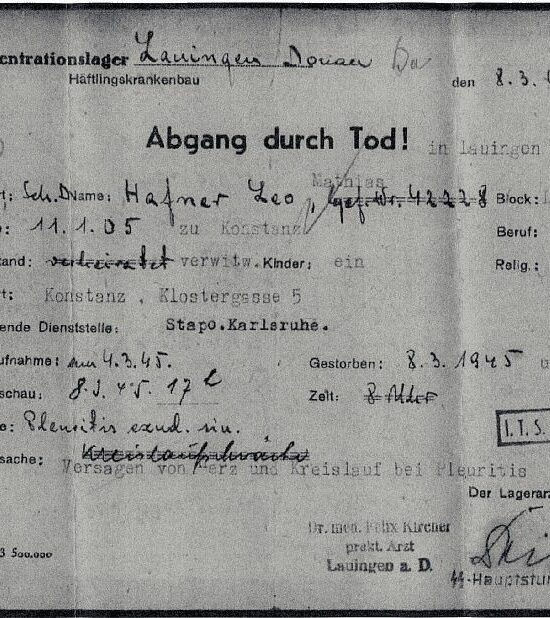 entrationslager Lauingen Donau
Häftlingskrankenbau
den 8.3.
Abgang durch Tod! in Lauingen
Mathias
Sch.D Name: Hafner Leo, Gef. Nr. 42228 Block:
11.1.05 zu Konstanz Beruf:
and: verheiratet verwitw. Kinder: ein Relig.:
t: Konstanz, Klostergasse 5
ende Dienststelle: Stapo.Karlsruhe.
ufnahme: am 4.3.45. Gestorben: 8.3.1945 u
schau: 8.3.45. 17 Zeit: 8 Uhr
e: Pleuritis exud. sin.
I.T.S.
sache: Kreislaufschwäche
Versagen von Herz und Kreislauf bei Pleuritis
Der Lagerarz
Dr. med. Felix Kircher
prakt. Arzt
Lauingen a. D.
3 500.000
SS-Hauptstur